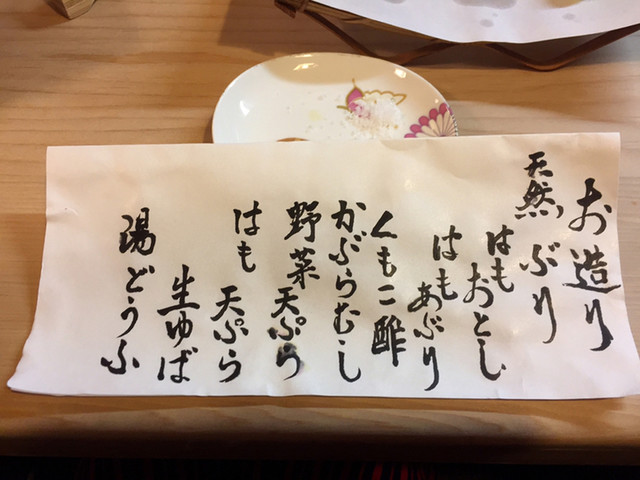 お造り
天然ぶり
はもおとし
はもあぶり
くもこ酢
かぶらむし
野菜天ぷら
はも天ぷら
生ゆば
湯どうふ